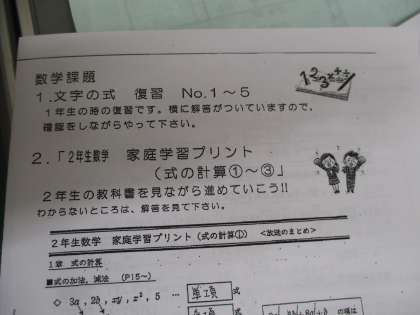 数学課題
1.文字の式 復習 No.1~5
1年生の時の復習です。横に解答がついていますので、
確認をしながらやって下さい。
2.「2年生数学 家庭学習プリント
(式の計算①~③」
2年生の教科書を見ながら進めていこう!!
わからないところは、解答を見て下さい。
2年生数学 家庭学習プリント(式の計算①) <放送のまとめ>
1章 式の計算
■式の加法,減法 (P15~)
◇ 3a, 2b, xy, x², 5 … 単項 式
の項は